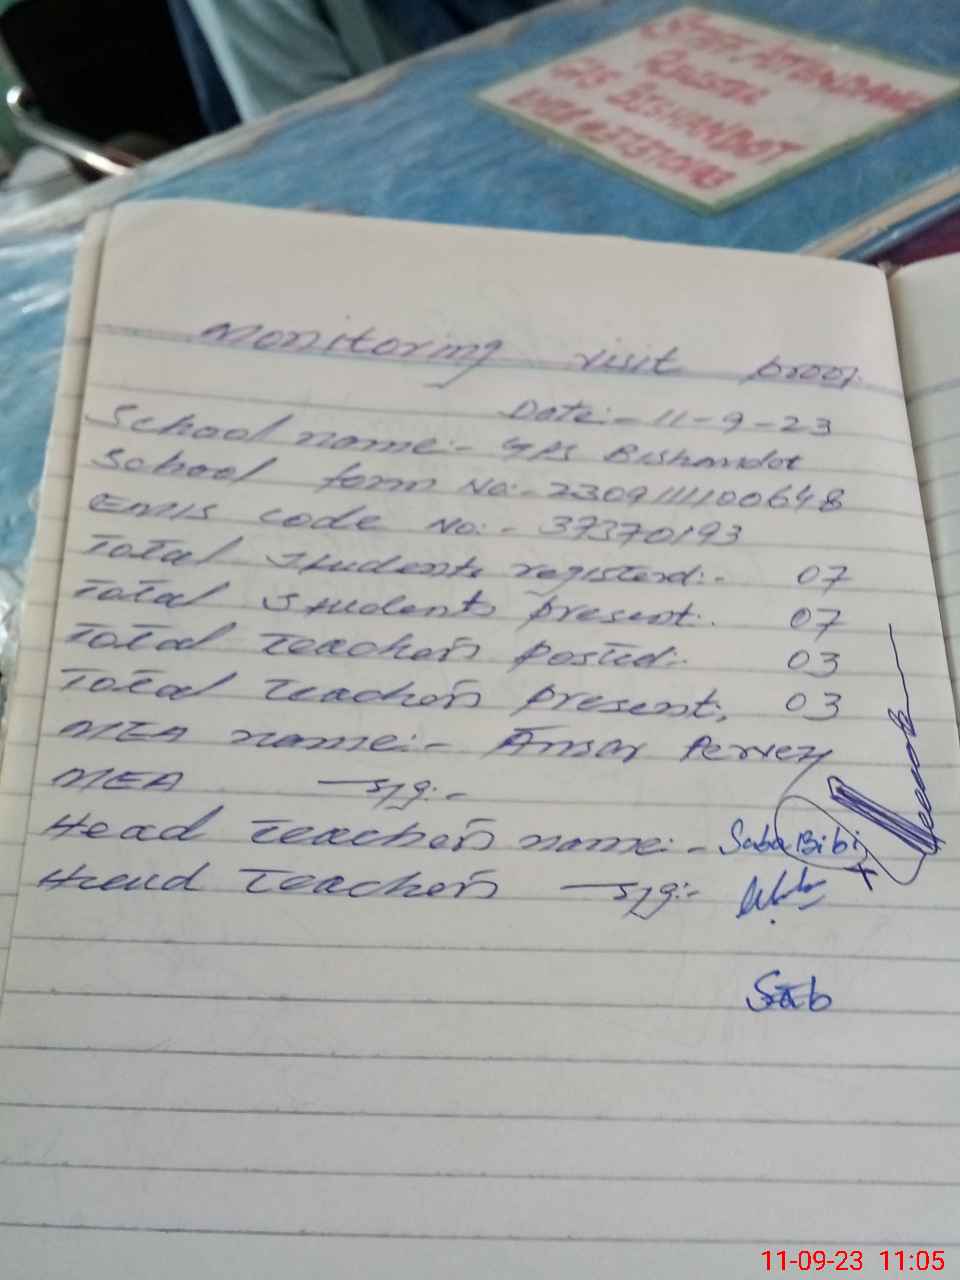 STAFF ATTENDANCE
REGISTER
GPS BISHANDOT
Monitoring visit proof.
Date:- 11-9-23
School name:- GPS Bishandot
School form No:- 2309111100648
EMIS code No:- 37370193
Total students registerd:- 07
Total students present:- 07
Total Teachers posted:- 03
Total Teachers present, 03
MEA name:- Ansar Pervez
MEA sig:-
Head Teachers name:- Saba Bibi
Head Teachers sig:-
Sab
11-09-23 11:05